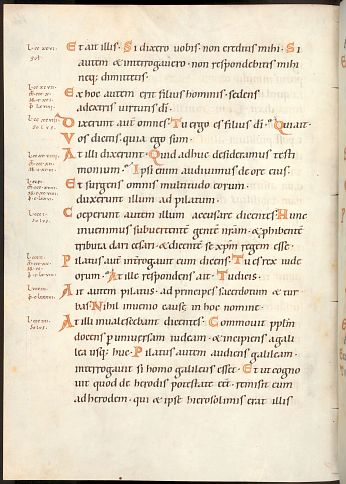 Et ait illis. Si dixero uobis. non creditis mihi. Si
autem & interrogauero. non respondebitis mihi
neq; dimittetis.
Ex hoc autem erit filius hominis. sedens
adextris uirtutis di.
Dixerunt aut omnes. Tu ergo es filius di. Qui ait.
Vos dicitis. quia ego sum.
At illi dixerunt. Quid adhuc desideramus testi
monium. Ipsi enim audiuimus de ore eius
Et surgens omnis multitudo eorum.
duxerunt illum ad pilatum.
Coeperunt autem illum accusare dicentes. Hunc
inuenimus subuertentem gentem nram. & phibente
tributa dari cesari. & dicente se xpm regem esse.
Pilatus aut interrogauit eum dicens. Tu es rex iude
orum. At ille respondens ait. Tu dicis.
Ait autem pilatus. ad principes sacerdotum & tur
bas. Nihil inuenio cause in hoc homine.
At illi inualescebant dicentes. Commouit pplm
docens p uniuersam iudeam. & incipiens a gali
lea usq; huc. Pilatus autem audiens galileam.
interrogauit si homo galileus esset. Et ut cogno
uit quod de herodis potestate e&. remisit eum
ad herodem. qui & ipse hierosolimis erat illis